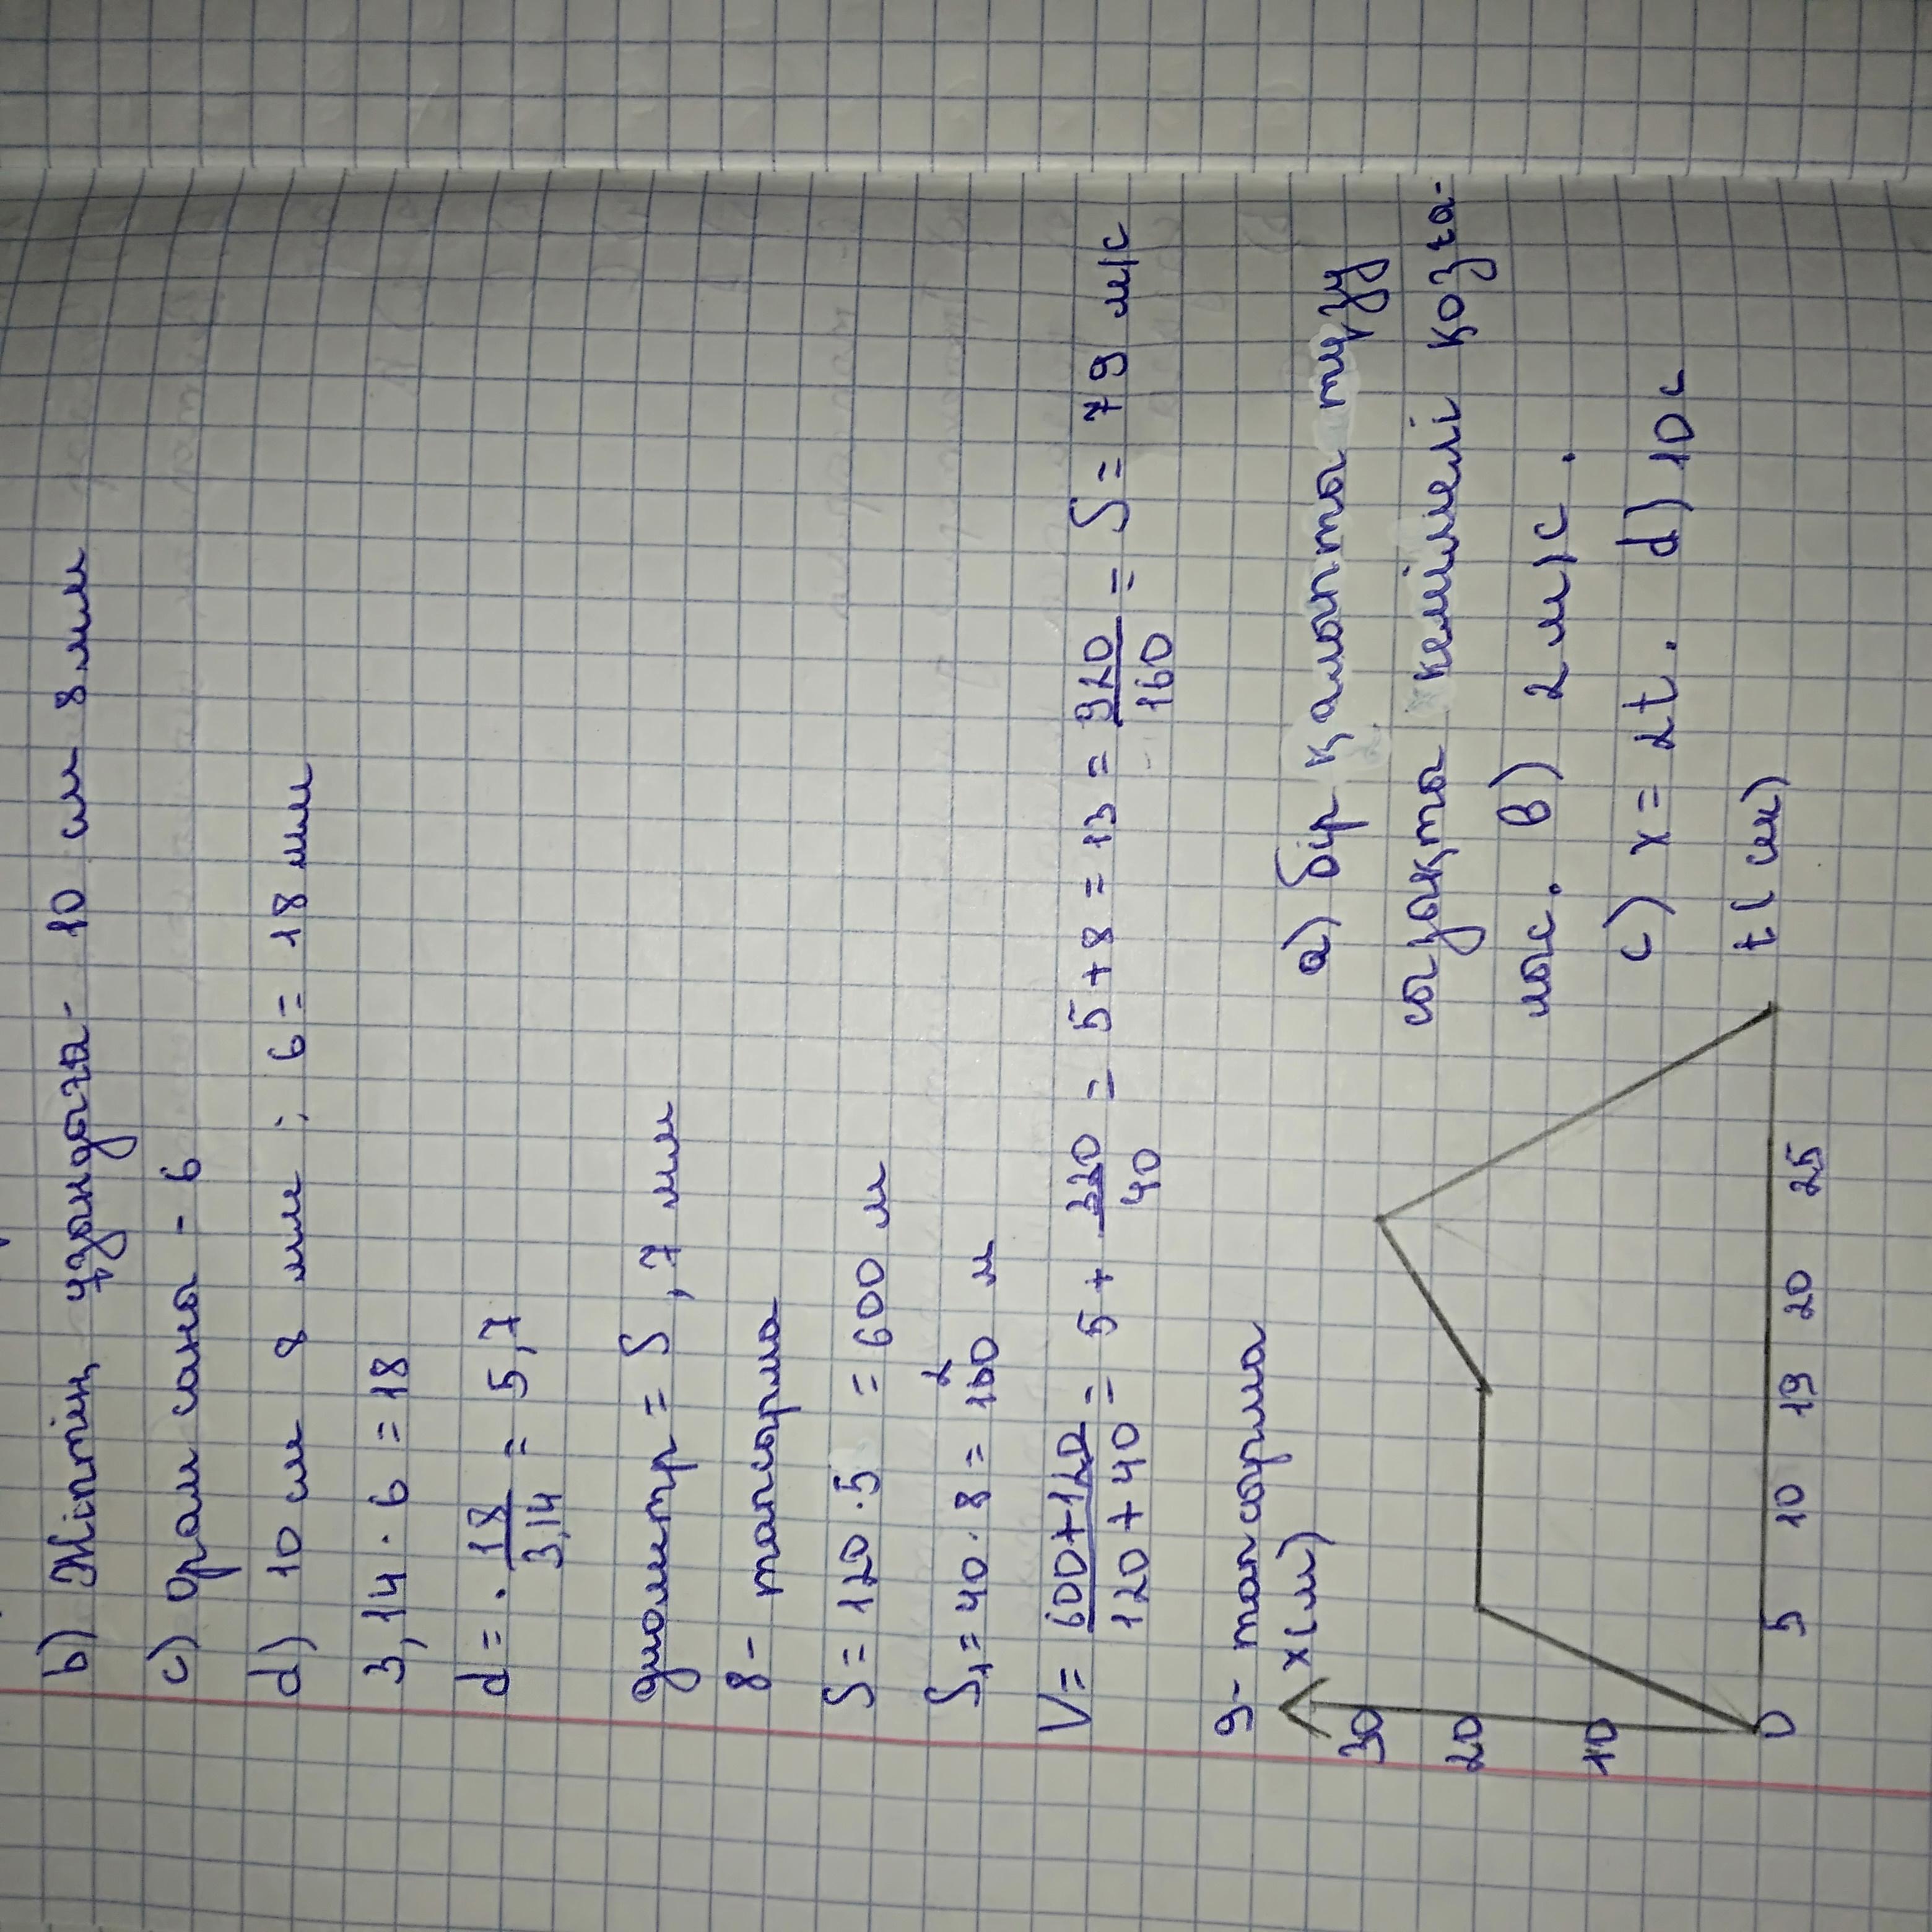 b) Жіптің ұзындыға- 10 см 8 мм
c) Орам саны - 6
d) 10 см 8 мм : 6 = 18 мм
3,14 · 6 = 18
d = · 18/3,14 = 5,7
диаметр = 5,7 мм
8- тапсырма
S = 120 · 5 = 600 м
S₁ = 40 · 8 = 160 м
V = 600+120/120+40 = 5 + 320/40 = 5 + 8 = 13 = 920/160 = S = 79 м/с
9- тапсырма
x(м)
30
20
10
0 5 10 19 20 25
t(м)
a) бір қалыпта түзу
сызықта кемімелі қозға-
лыс. в) 2 м/с.
c) x = 2t. d) 10 с